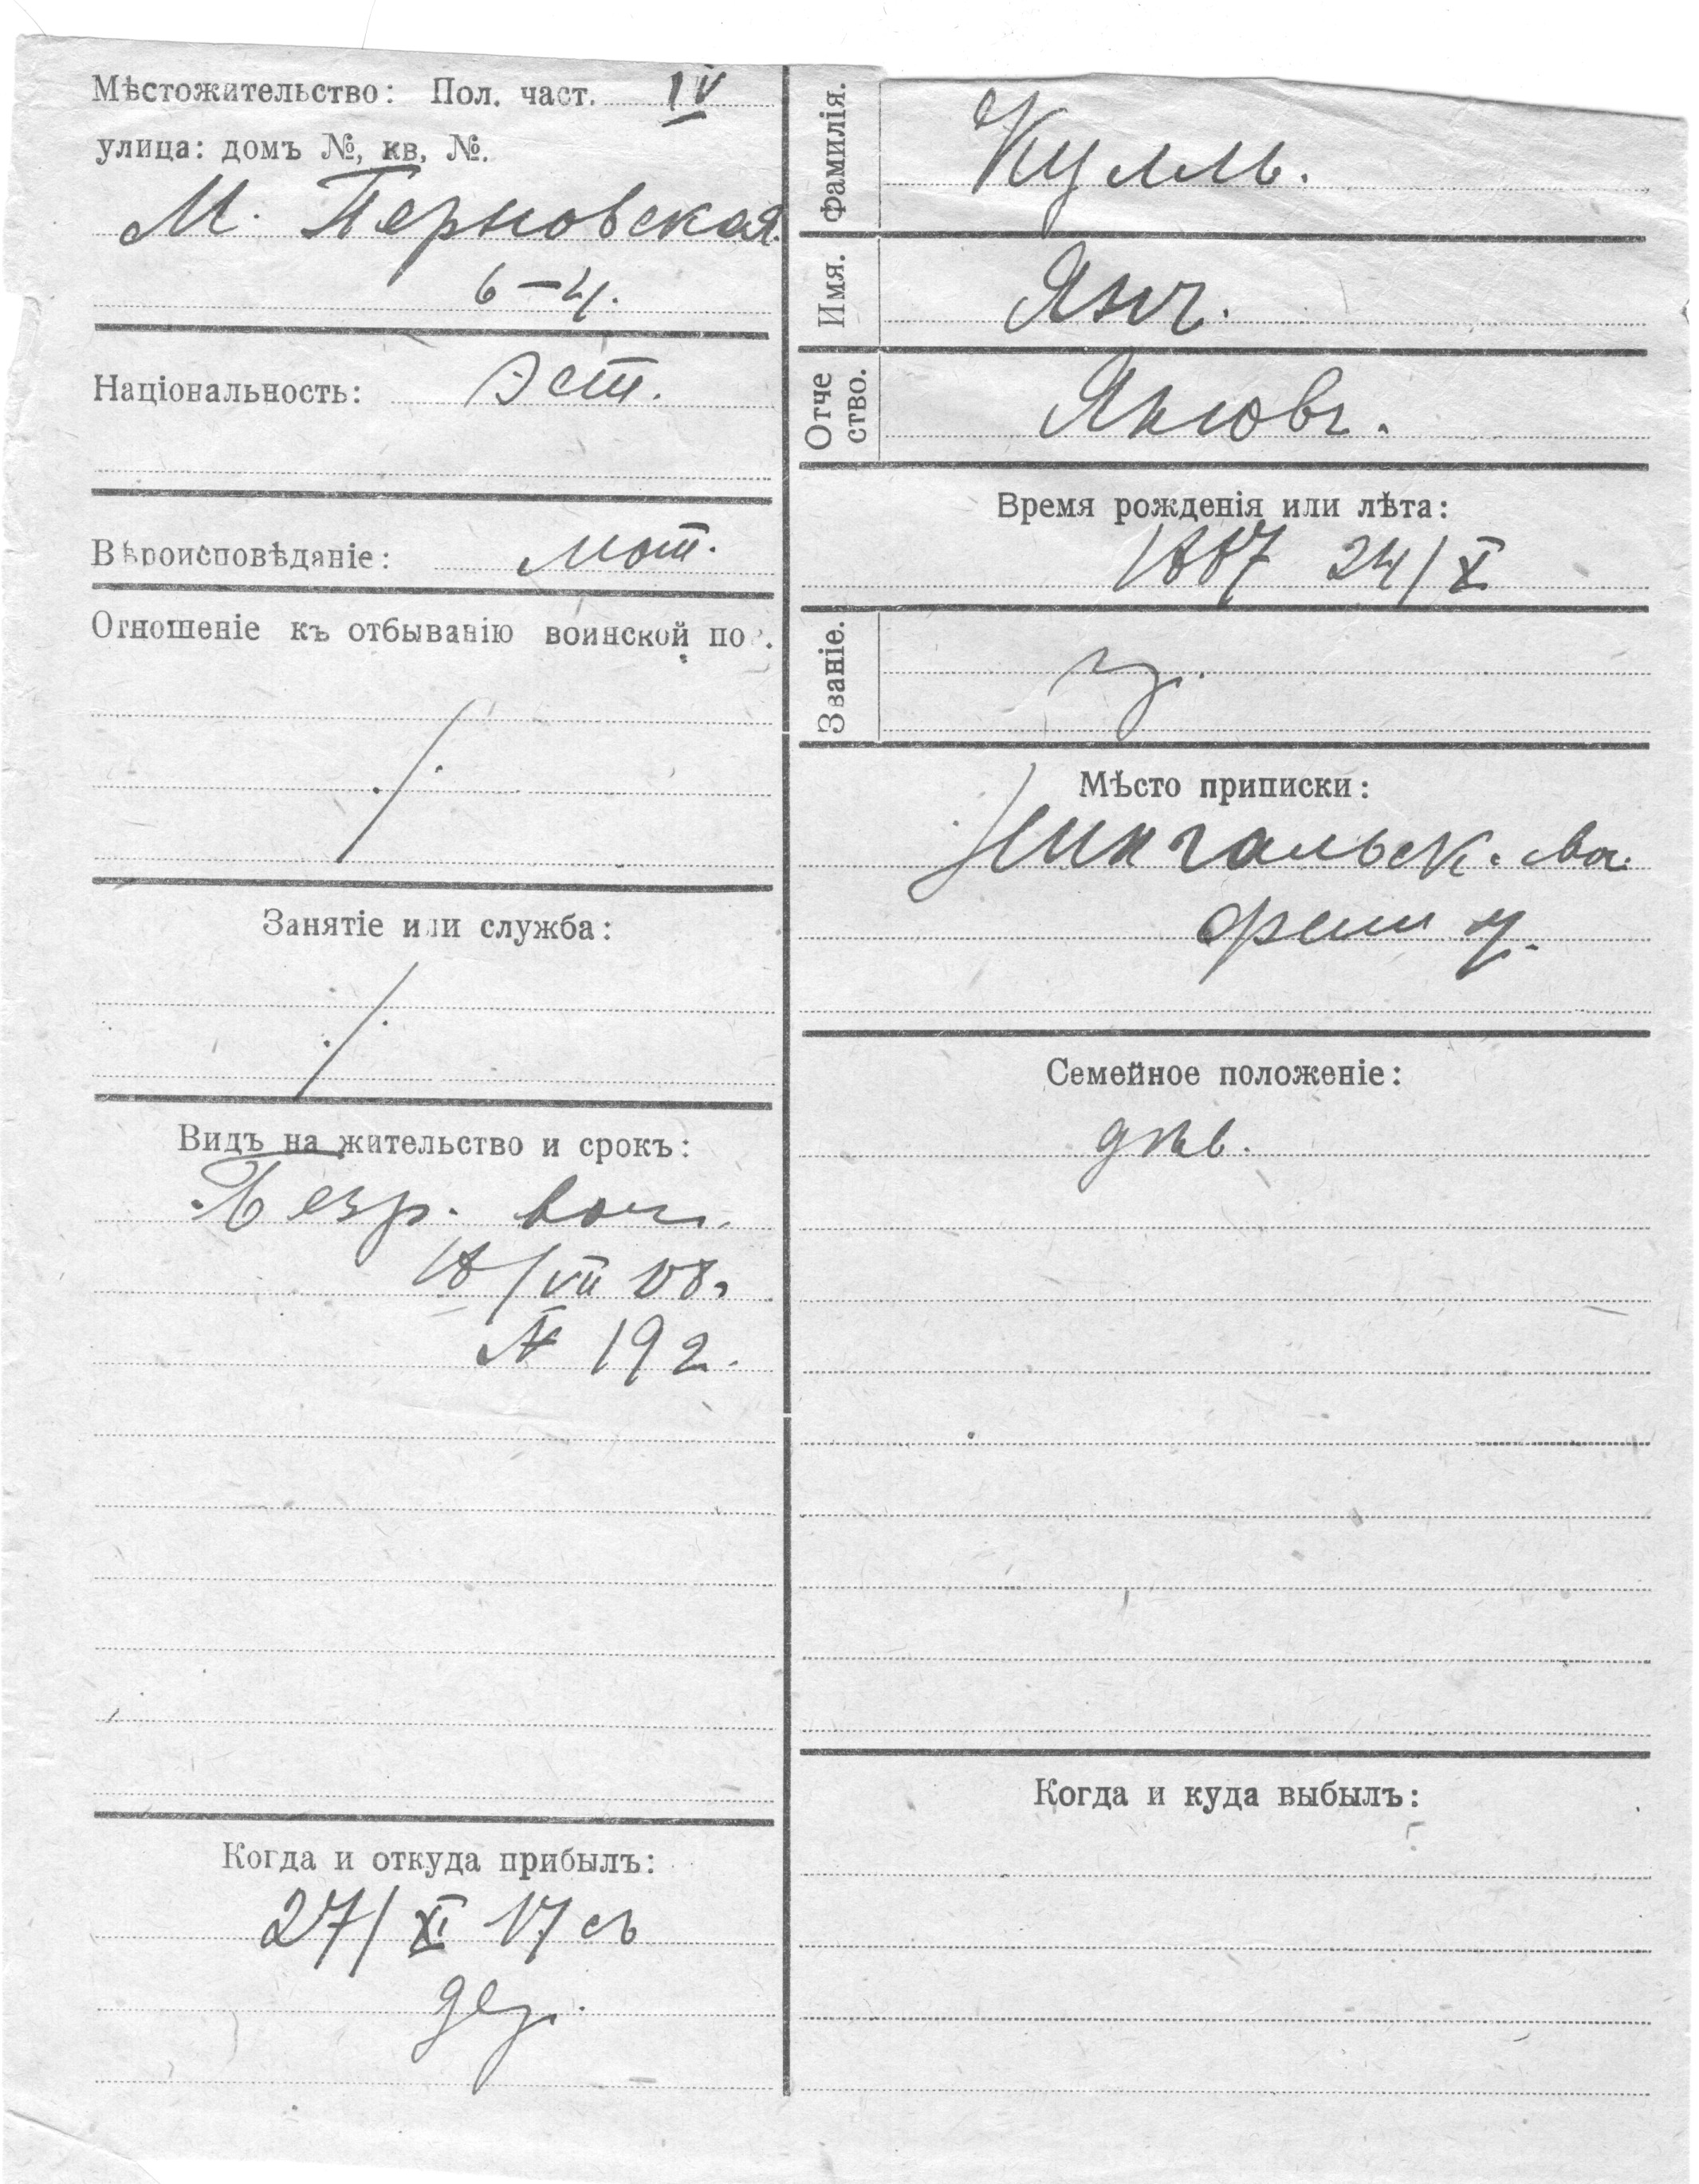 Мѣстожительство: Пол. част. IV
улица: домъ №, кв. №.
М. Перновская
6-4.
Національность: Эст.
Вѣроисповѣданіе: лют.
Отношеніе къ отбыванію воинской по .
Занятіе или служба:
Видъ на жительство и срокъ:
Безр.
18/VII 08.
№ 192.
Когда и откуда прибылъ:
27/XI 17 съ
Фамилія. Кулль.
Имя. Янъ.
Отче
ство. Яковъ.
Время рожденія или лѣта:
1887 24/X
Званіе.
Мѣсто приписки:
Семейное положеніе:
Когда и куда выбылъ: